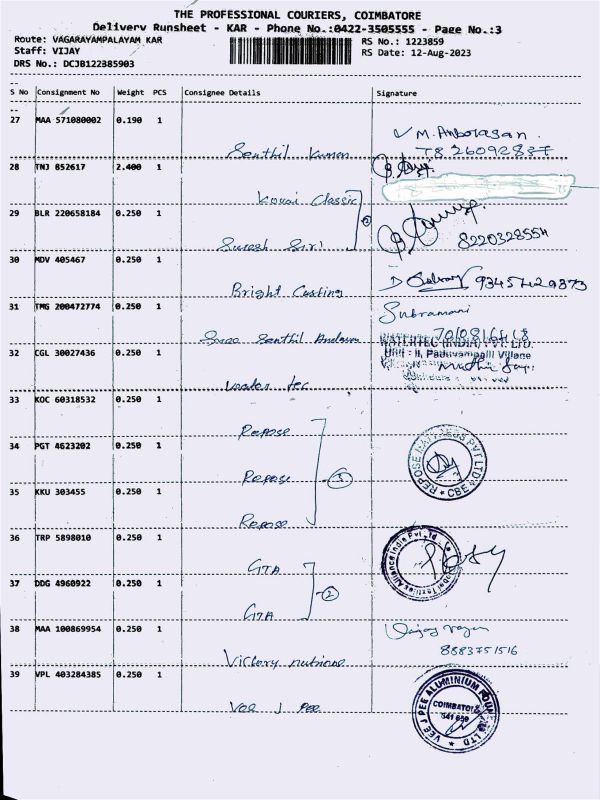 THE PROFESSIONAL COURIERS, COIMBATORE
Delivery Runsheet - KAR - Phone No.:0422-3505555 - Page No.:3
Route: VAGARAYAMPALAYAM KAR
RS No.: 1223859
Staff: VIJAY
RS Date: 12-Aug-2023
DRS No.: DCJB122385903
S No Consignment No Weight PCS Consignee Details Signature
27 MAA 571080002 0.190 1
Senthil Kumar
M. Anbarasan.
28 TNJ 852617 2.400 1
Kovai Classic
29 BLR 220658184 0.250 1
Suresh Siri
8220328554
30 MDV 405467 0.250 1
Bright Casting
31 TMG 200472774 0.250 1
Senthil
Subramani
32 CGL 30027436 0.250 1
tec
WATERTEC (INDIA) PVT. LTD.
Unit - II, Paduvampalli Village
33 KOC 60318532 0.250 1
Repose
34 PGT 4623202 0.250 1
Repose
3
REPOSE MATTRESS PVT LTD
CBE
35 KKU 303455 0.250 1
Repose
36 TRP 5898010 0.250 1
GTA
Global Textiles Alliance India Pvt. Ltd.
37 DDG 4960922 0.250 1
GTA
2
38 MAA 100869954 0.250 1
Victory
8883751516
39 VPL 403284385 0.250 1
Vee J Pee
VEE J PEE ALUMINIUM FOUNDRY LTD
COIMBATORE